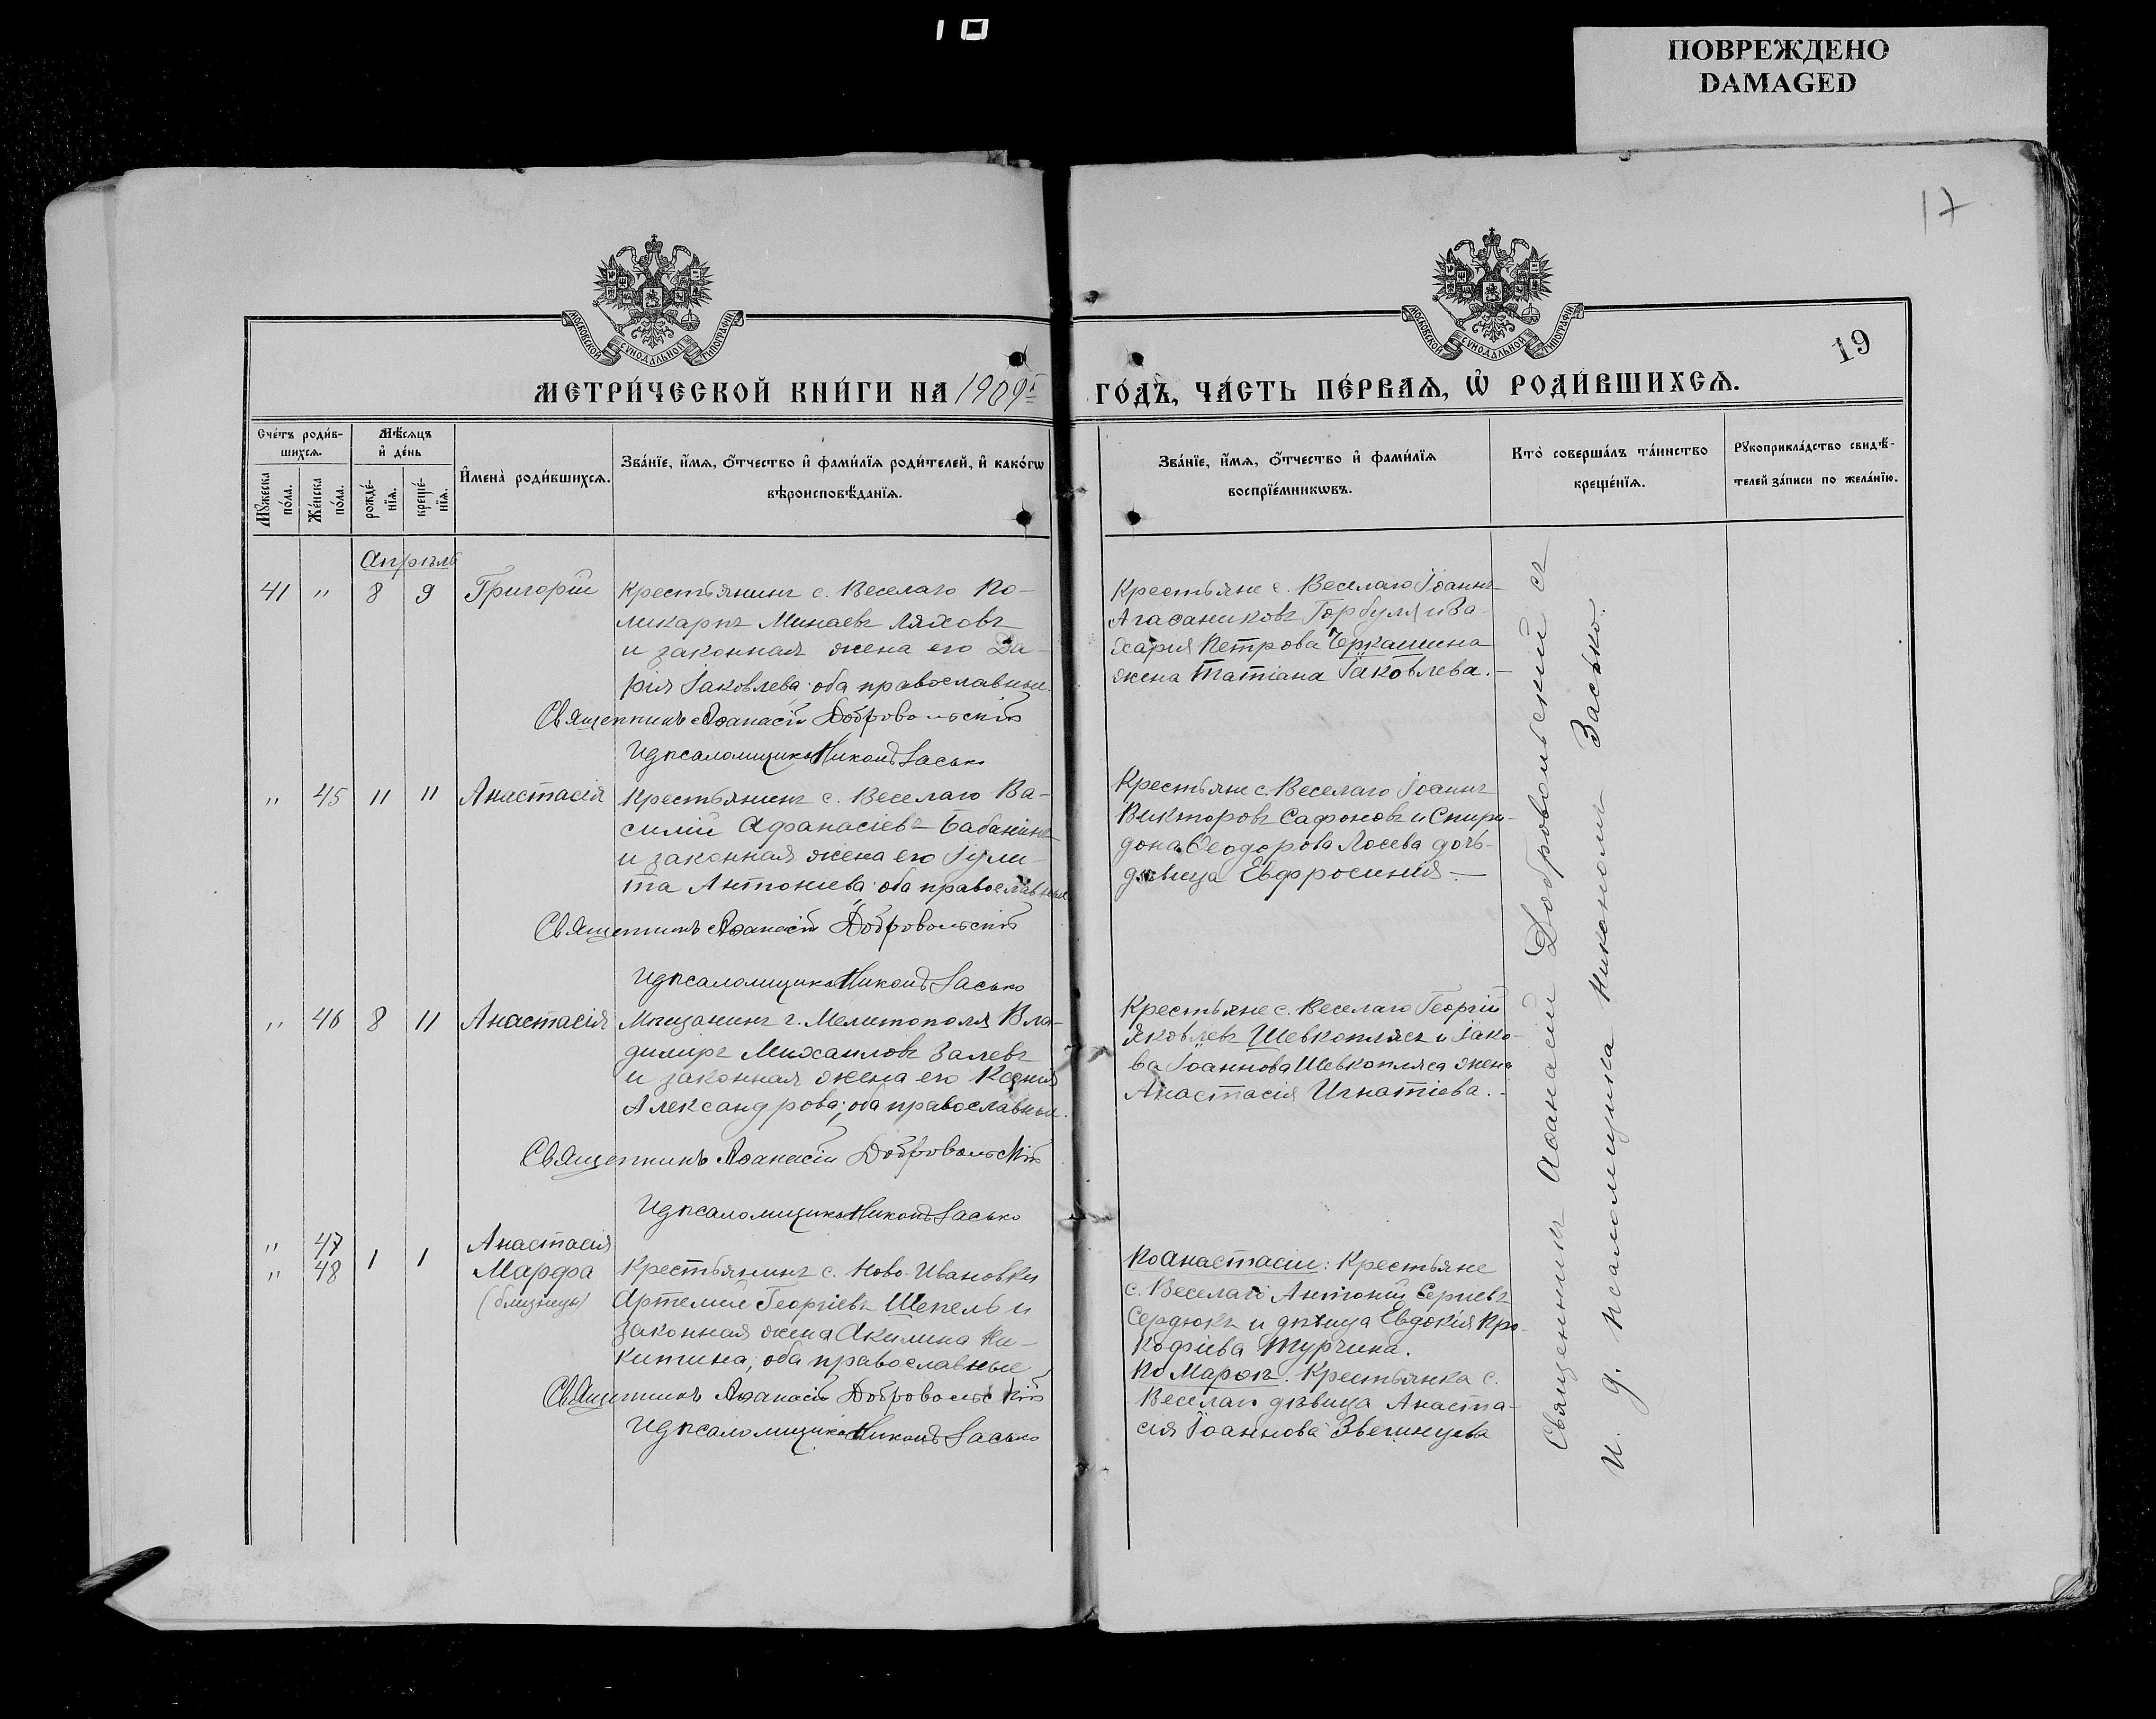 10
ПОВРЕЖДЕНО
DAMAGED
17
19
МОСКОВСКОЙ СѴНОДАЛЬНОЙ ТИПОГРАФІИ
МОСКОВСКОЙ СѴНОДАЛЬНОЙ ТИПОГРАФІИ
МЕТРИ́ЧЕСКОЙ КНИ́ГИ НА 1909й ГО́ДЪ, ЧА́СТЬ ПЕ́РВАѦ, Ѿ РОДИ́ВШИХСѦ.
Сче́тъ роди́в-
шихсѧ.
Мꙋжеска по́ла.
Же́нска по́ла.
Мѣ́сѧцъ
и҆ де́нь
рожде́-
нїѧ.
креще́-
нїѧ.
И҆мена̀ роди́вшихсѧ.
Зва́нїе, и҆́мѧ, ѻ҆́тчество и҆ фами́лїѧ роди́телей, и҆ како́гѡ
вѣроисповѣ́данїѧ.
Зва́нїе, и҆́мѧ, ѻ҆́тчество и҆ фами́лїѧ
воспрїе́мникѡвъ.
Кто̀ соверша́лъ та́инство
креще́нїѧ.
Рꙋкоприкла́дство свидѣ́-
телей за́писи по жела́нїю.
Апрѣль
41 " 8 9 Григорій
Крестьянинъ с. Веселаго По-
ликарпъ Минаевъ Ляховъ
и законная жена его Да-
рія Іаковлева; оба православные.
Священникъ Аѳанасій Добровольскій
Ид псаломщика Никонъ Засько
Крестьяне с. Веселаго Іоаннъ
Агаѳаниковъ Горбуля и За-
харія Петрова Черкашина
жена Татіана Іаковлева.-
" 45 11 11 Анастасія
Крестьянинъ с. Веселаго Ва-
силій Афанасіевъ Бабанинъ
и законная жена его Іули-
та Антоніева; оба православные
Священникъ Аѳанасій Добровольскій
Ид псаломщика Никонъ Засько
Крестьяне с. Веселаго Іоаннъ
Викторовъ Сафоновъ и Спири-
дона Ѳеодорова Лосева дочь-
дѣвица Евфросинія —
" 46 8 11 Анастасія
Мѣщанинъ г. Мелитополя Вла-
димиръ Михаиловъ Залевъ
и законная жена его Ксенія
Александрова; оба православные.
Священникъ Аѳанасій Добровольскій
Ид псаломщика Никонъ Засько
Крестьяне с. Веселаго Георгій
Яковлевъ Шевкоплясъ и Іако-
ва Іоаннова Шевкопляса жена
Анастасія Игнатіева.-
" 47 Анастасія
" 48 1 1 Марфа
(близнецы)
Крестьянинъ с. Ново-Ивановки
Артемій Георгіевъ Шепель и
законная жена Акилина Ни-
китина; оба православные
Священникъ Аѳанасій Добровольскій
Ид псаломщика Никонъ Засько
По Анастасіи: Крестьяне
с. Веселаго Антоній Сергіевъ
Сердюкъ и дѣвица Евдокія Про-
кофіева Турчина.
По Марѳѣ. Крестьянка с.
Веселаго дѣвица Анаста-
сія Іоаннова Звегинцева
Священникъ Аѳанасій Добровольскій съ
и. д. псаломщика Никономъ Засько.